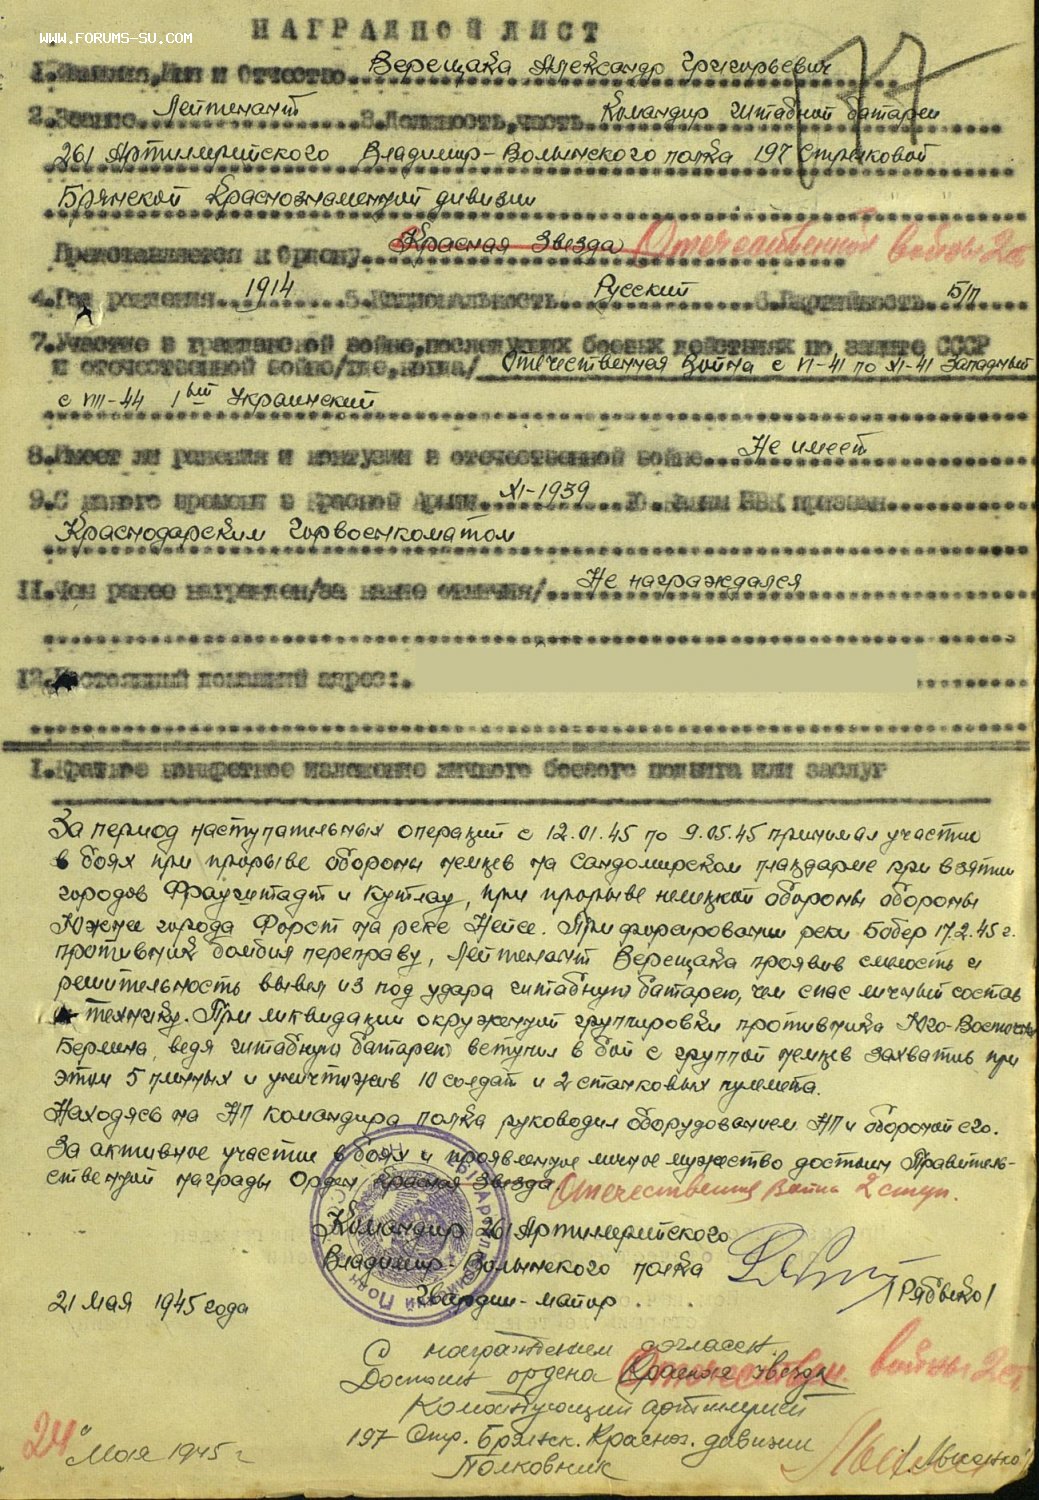 НАГРАДНОЙ ЛИСТ
WWW.FORUMS-SU.COM
77
1. Фамилия, Имя и Отчество Верещака Александр Григорьевич
2. Звание Лейтенант 3. Должность, часть Командир Штабной батареи
261 Артиллерийского Владимир-Волынского полка 197 Стрелковой
Брянской Краснознаменной дивизии
Представляется к Ордену Красная Звезда Отечественной войны 2 ст
4. Год рождения 1914 5. Национальность Русский 6. Партийность Б/П
7. Участие в гражданской войне, последующих боевых действиях по защите СССР
и отечественной войне/где, когда/ Отечественная Война с VI-41 по XI-41 Западный
с VIII-44 1ый Украинский
8. Имеет ли ранения и контузии в отечественной войне Не имеет
9. С какого времени в Красной Армии XI-1939 10. Каким РВК призван
Краснодарским Горвоенкоматом
11. Чем ранее награжден/за какие отличия/ Не награждался
12. Постоянный домашний адрес:
I. Краткое конкретное изложение личного боевого подвига или заслуг
За период наступательных операций с 12.01.45 по 9.05.45 принимал участие
в боях при прорыве обороны немцев на Сандомирском плацдарме при взятии
городов Фрауштадт и Гутлау, при прорыве немецкой обороны обороны
Южнее города Форст на реке Нейсе. При форсировании реки Бобер 17.2.45 г.
противник бомбил переправу, Лейтенант Верещака проявив смелость и
решительность вывел из под удара штабную батарею, чем спас личный состав
и технику. При ликвидации окруженной группировки противника Юго-Восточнее
Берлина, ведя штабную батарею вступил в бой с группой немцев захватив при
этом 5 пленных и уничтожив 10 солдат и 2 станковых пулемета.
Находясь на НП командира полка руководил оборудованием НП и обороной его.
За активное участие в боях и проявленное личное мужество достоин Правитель-
ственной награды Орден Красная Звезда Отечественная Война 2 степ.
Командир 261 Артиллерийского
Владимир-Волынского полка
Гвардии-майор /Рябенко/
21 Мая 1945 года
С награждением согласен.
Достоин ордена Красная звезда Отечествен. войны 2 ст
Командующий артиллерией
197 Стр. Брянск. Красноз. дивизии
Полковник
24 Мая 1945 г